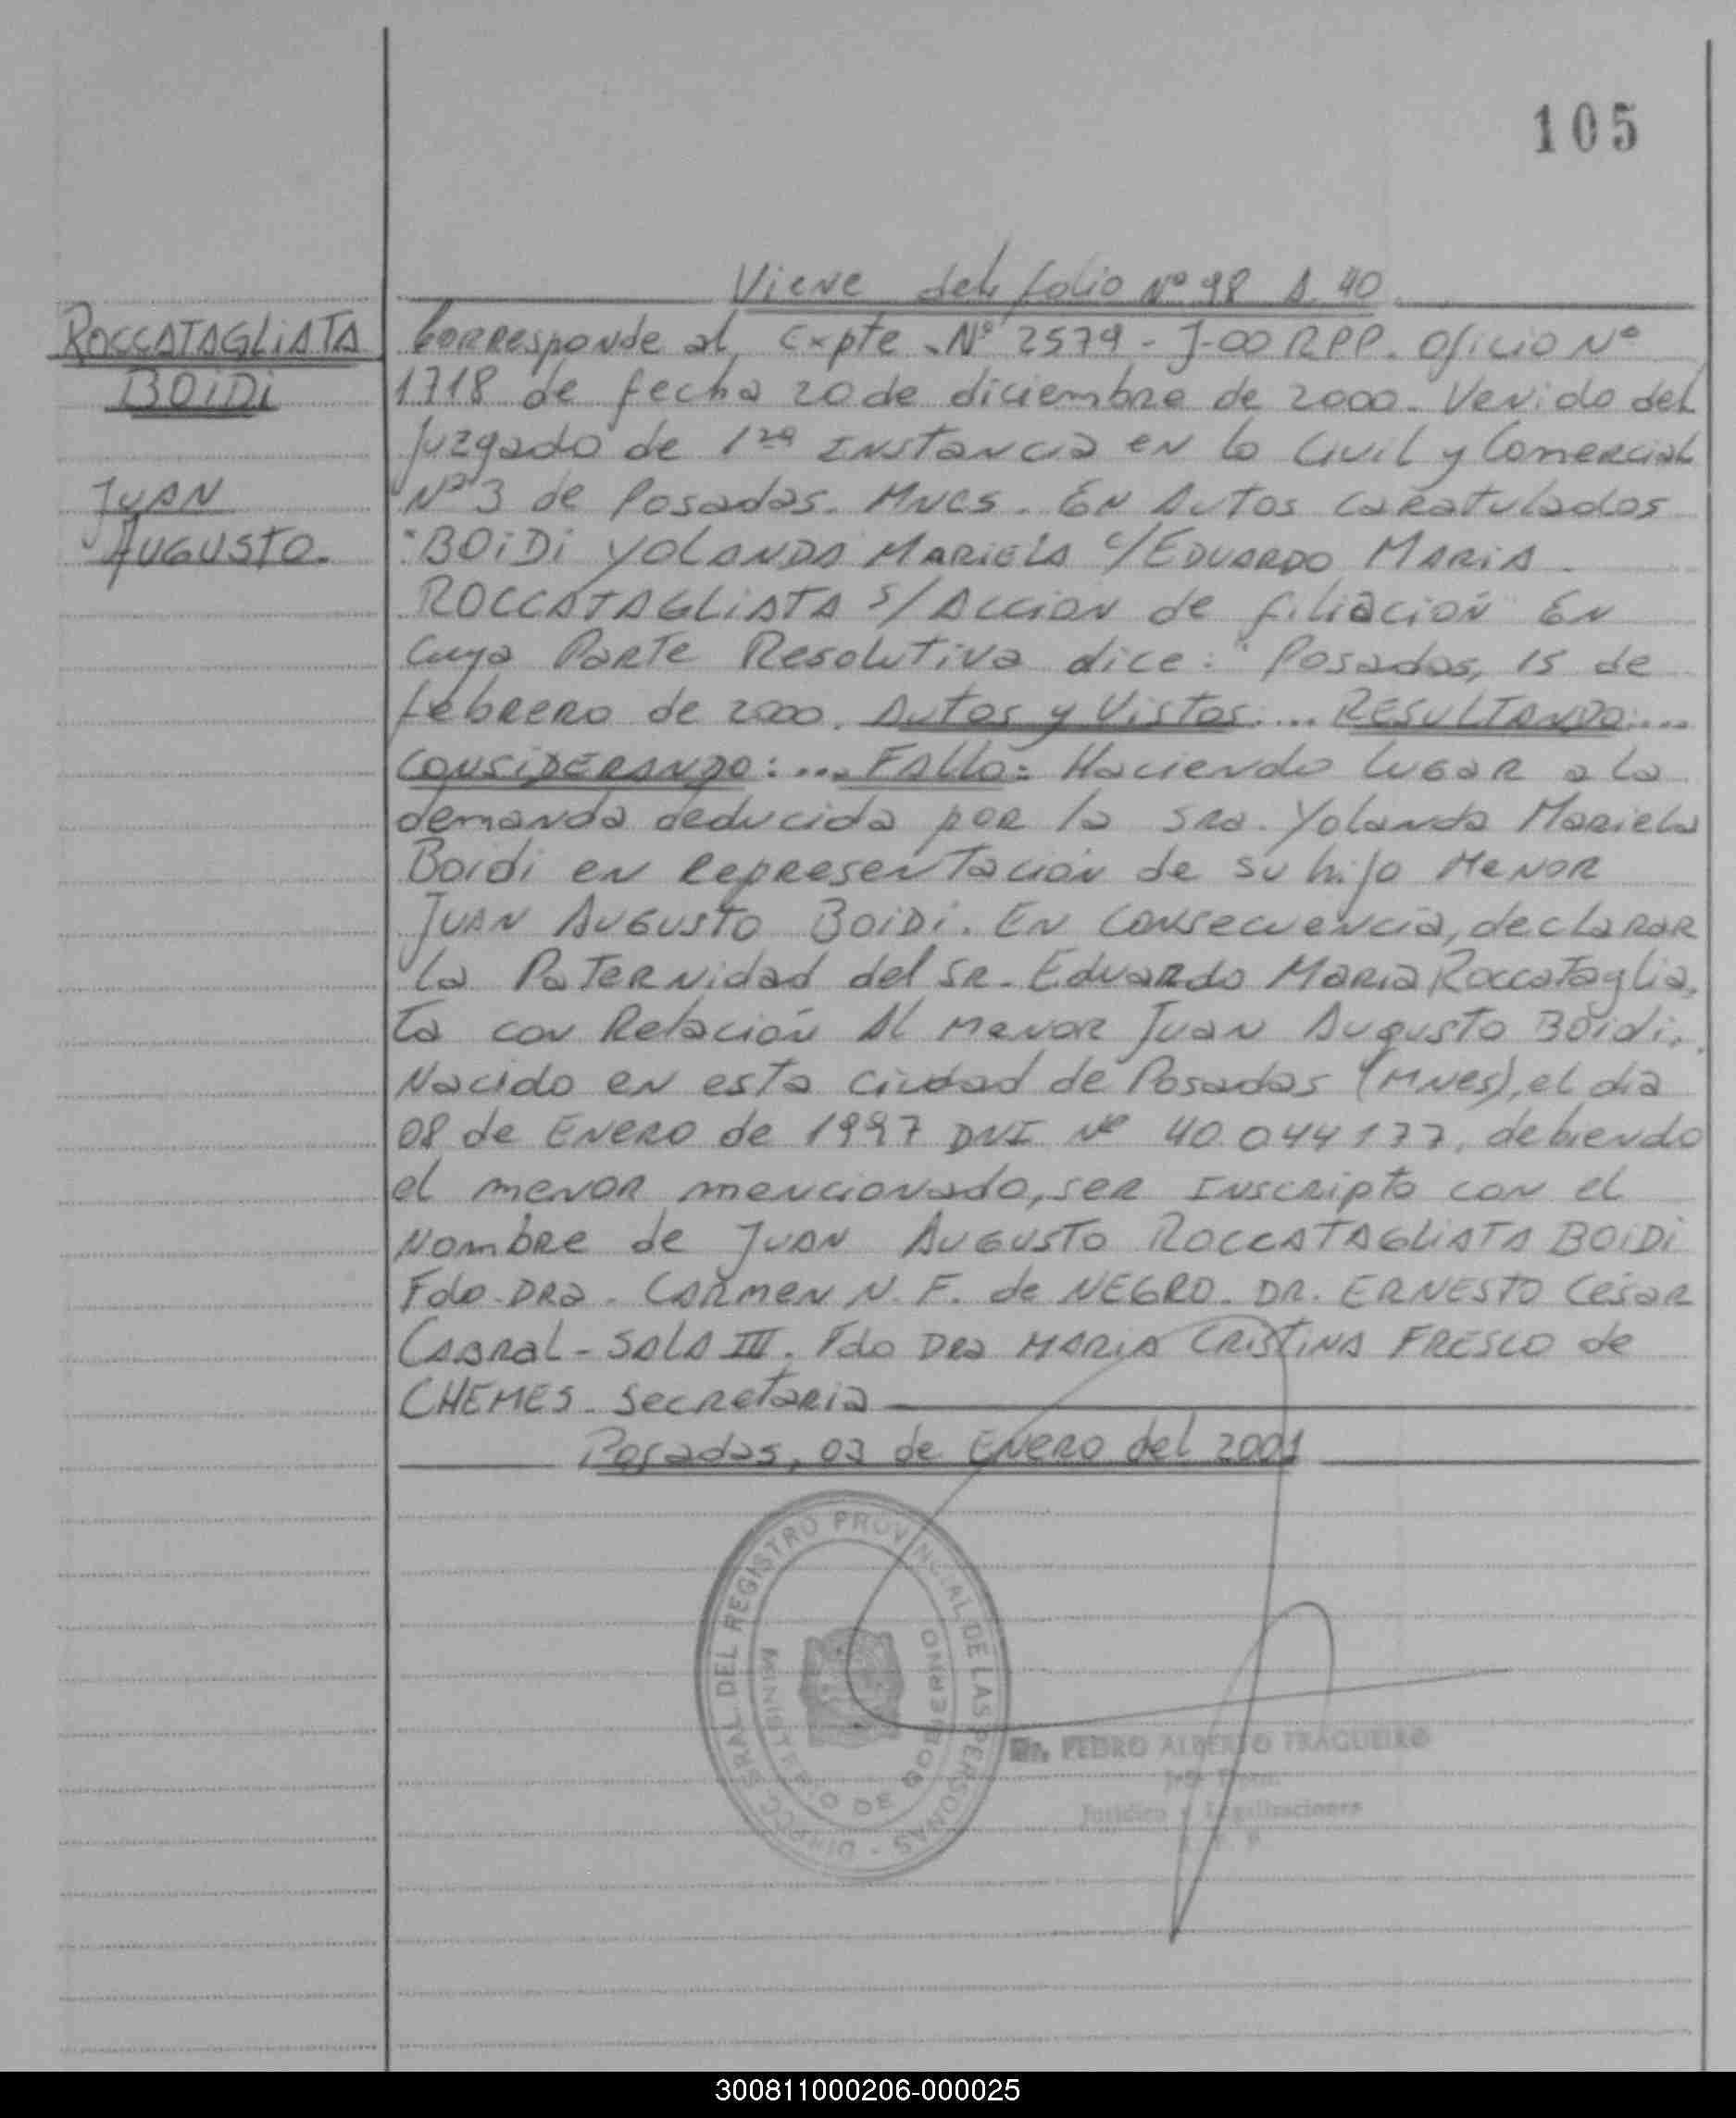 105
Viene del folio Nº 98 A. 40
ROCCATAGLIATA
BOIDI
JUAN
AUGUSTO.
Corresponde al Expte. Nº 2579 - J-00 RPP. Oficio Nº
1718 de fecha 20 de diciembre de 2000. Venido del
Juzgado de 1ra INSTANCIA EN lo Civil y Comercial
Nº 3 de Posadas. MNES. EN AUTOS CARATULADOS
"BOIDI YOLANDA MARIELA c/EDUARDO MARIA
ROCCATAGLIATA s/ACCION de filiación" EN
Cuya Parte Resolutiva dice: "Posadas, 15 de
febrero de 2000. Autos y Vistos:... RESULTANDO:...
CONSIDERANDO:... FALLO: Haciendo lugar a la
demanda deducida por la Sra. Yolanda Mariela
Boidi en Representación de su hijo MENOR
JUAN AUGUSTO BOIDI. EN consecuencia, declarar
la Paternidad del Sr. Eduardo Maria Roccataglia-
ta con Relación al menor Juan Augusto Boidi,
Nacido en esta Ciudad de Posadas (MNES), el día
08 de ENERO de 1997 DNI Nº 40.044177, debiendo
el menor mencionado, ser Inscripto con el
Nombre de JUAN AUGUSTO ROCCATAGLIATA BOIDI
Fdo. DRa. CARMEN N. F. de NEGRO. DR. ERNESTO César
CABRAL - SALA III. Fdo Dra MARIA CRISTINA FRESCO de
CHEMES. Secretaria
Posadas, 03 de ENERO del 2001
DIRECC. GRAL. DEL REGISTRO PROVINCIAL DE LAS PERSONAS -
MINISTERIO DE GOBIERNO
Dr. PEDRO ALBERTO FRAGUEIRO
Jurídico y Legalizaciones
300811000206-000025